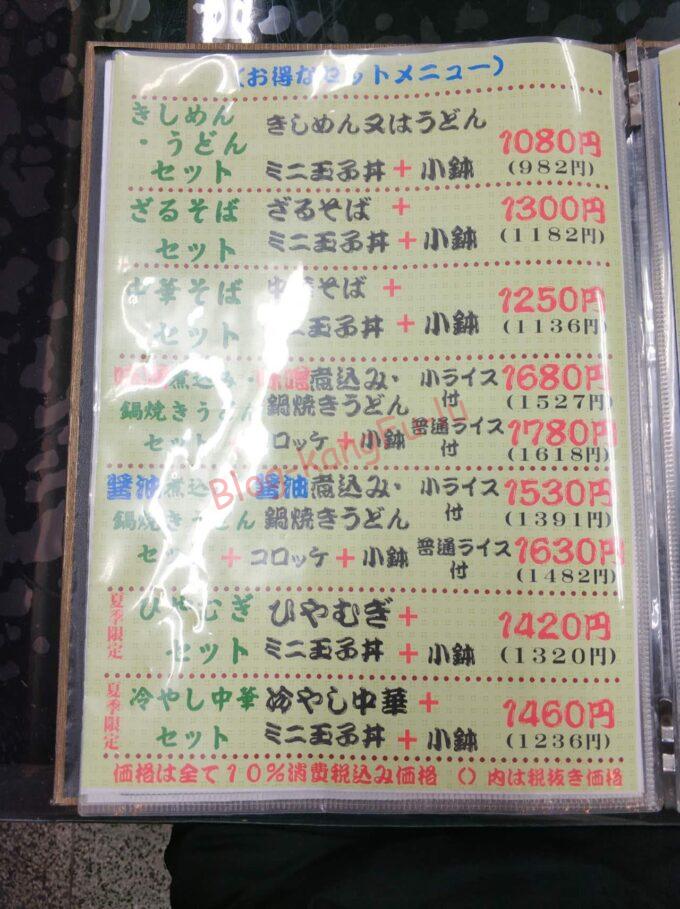 (お得なセットメニュー)
きしめん
・うどん
セット
きしめん又はうどん
ミニ玉子丼+小鉢
1080円
(982円)
ざるそば
セット
ざるそば +
ミニ玉子丼+小鉢
1300円
(1182円)
中華そば
セット
中華そば +
ミニ玉子丼+小鉢
1250円
(1136円)
味噌煮込み・
鍋焼きうどん
セット
味噌煮込み・
鍋焼きうどん
+コロッケ+小鉢
小ライス
付
1680円
(1527円)
普通ライス
付
1780円
(1618円)
醤油煮込み・
鍋焼きうどん
セット
醤油煮込み・
鍋焼きうどん
+コロッケ+小鉢
小ライス
付
1530円
(1391円)
普通ライス
付
1630円
(1482円)
夏季限定
ひやむぎ
セット
ひやむぎ+
ミニ玉子丼+小鉢
1420円
(1320円)
夏季限定
冷やし中華
セット
冷やし中華 +
ミニ玉子丼+小鉢
1460円
(1236円)
価格は全て10%消費税込み価格 ()内は税抜き価格
Blog-KangFu.Ju